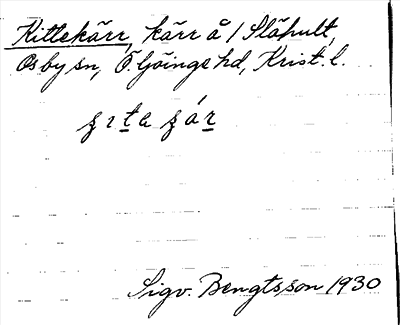 Kittekärr, kärr å 1 Slähult,
Osby sn, Ö. Göinge hd, Krist. l.
Sigv. Bengtsson 1930